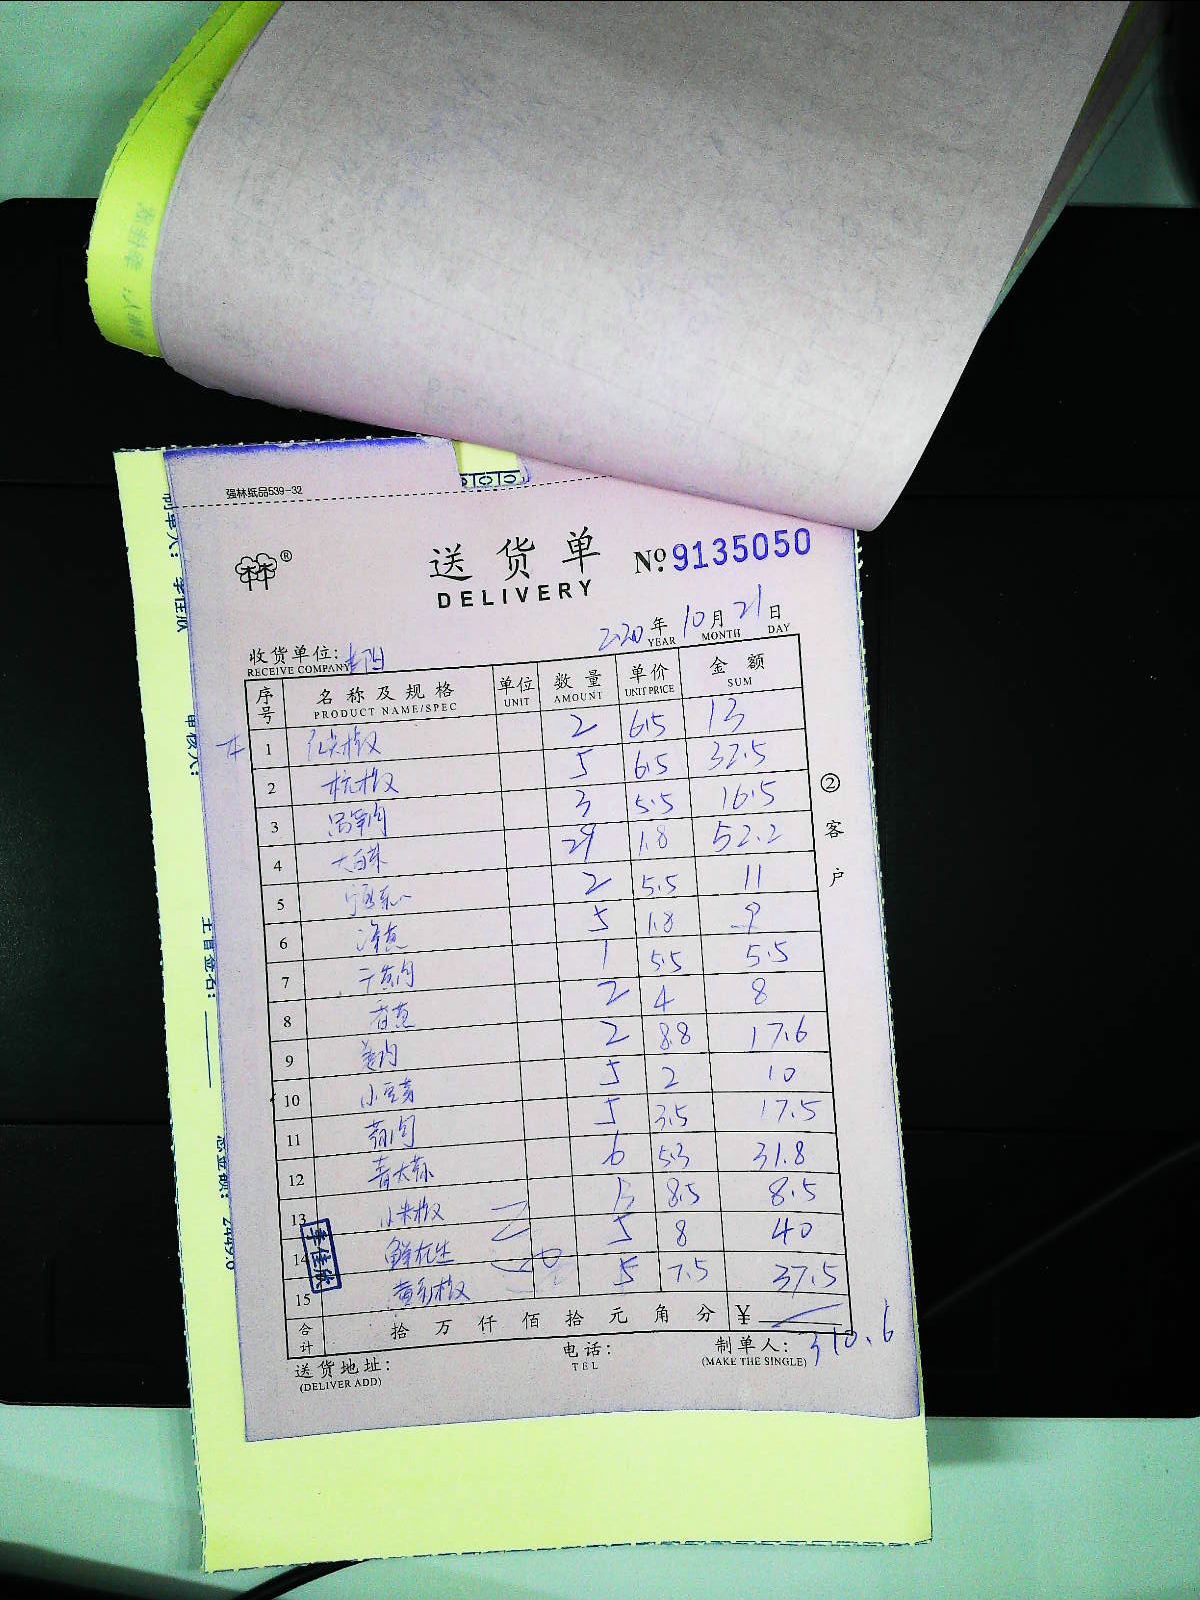 强林纸品539-32
送货单 No.9135050
DELIVERY
2020年 10月 21日
YEAR MONTH DAY
收货单位:
RECEIVE COMPANY
序号 名称及规格 单位 数量 单价 金额
PRODUCT NAME/SPEC UNIT AMOUNT UNIT PRICE SUM
1 尖椒 2 6.5 13
2 杭椒 5 6.5 32.5
3 3 5.5 16.5
4 29 1.8 52.2
5 2 5.5 11
6 洋葱 5 1.8 9
7 1 5.5 5.5
8 香葱 2 4 8
9 姜肉 2 8.8 17.6
10 小豆芽 5 2 10
11 5 3.5 17.5
12 青大蒜 6 5.3 31.8
13 小米椒 1 8.5 8.5
14 鲜花生 5 8 40
15 黄彩椒 5 7.5 37.5
合计 拾 万 仟 佰 拾 元 角 分 ¥ 310.6
送货地址: 电话: 制单人:
(DELIVER ADD) TEL (MAKE THE SINGLE)
②客户
李佳欣
制单人: 李佳欣
审核人:
主管签名:
总金额: 2449.6